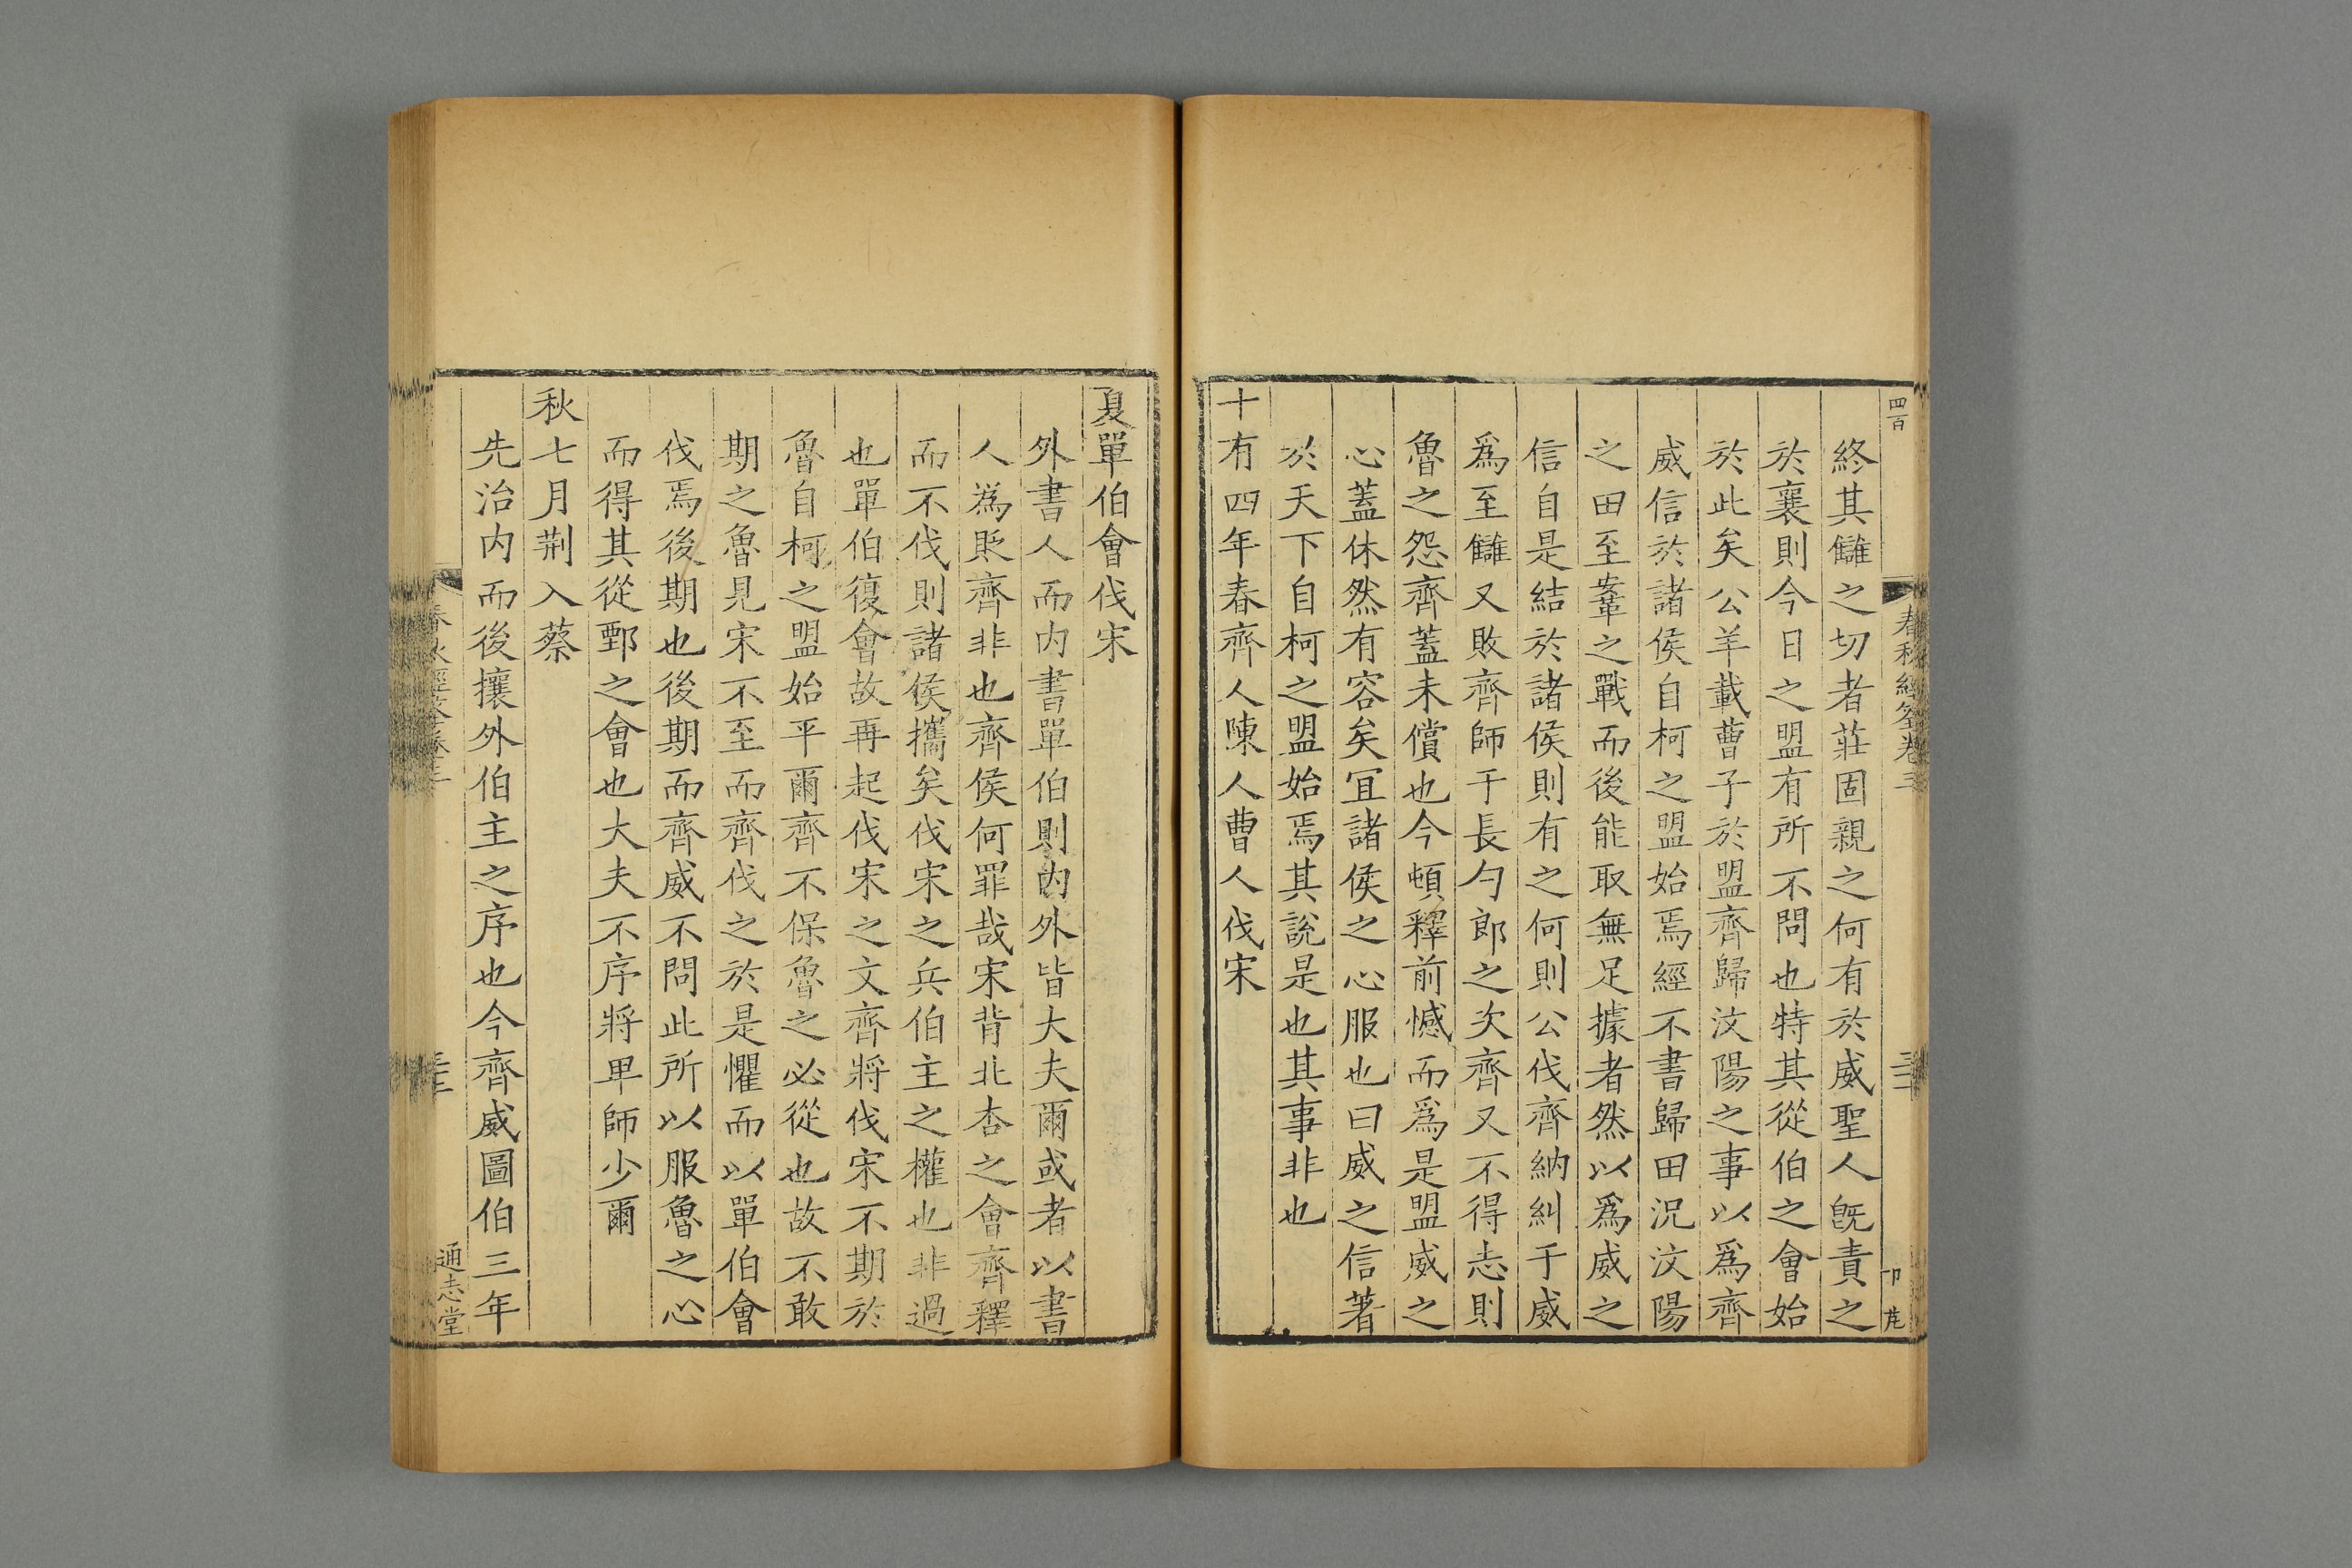 四百
終其讎之切者莊固親之何有於威聖人旣責之
於襄則今日之盟有所不問也特其從伯之會始
於此矣公羊載曹子於盟齊歸汶陽之事以爲齊
威信於諸侯自柯之盟始焉經不書歸田況汶陽
之田至鞌之戰而後能取無足據者然以爲威之
信自是結於諸侯則有之何則公伐齊納糾于威
爲至讎又敗齊師于長勺郎之次齊又不得志則
魯之怨齊蓋未償也今頓釋前憾而爲是盟威之
心蓋休然有容矣宜諸侯之心服也曰威之信著
於天下自柯之盟始焉其說是也其事非也
十有四年春齊人陳人曹人伐宋
夏單伯會伐宋
外書人而內書單伯則內外皆大夫爾或者以書
人爲貶齊非也齊侯何罪哉宋背北杏之會齊釋
而不伐則諸侯攜矣伐宋之兵伯主之權也非過
也單伯復會故再起伐宋之文齊將伐宋不期於
魯自柯之盟始平爾齊不保魯之必從也故不敢
期之魯見宋不至而齊伐之於是懼而以單伯會
伐焉後期也後期而齊威不問此所以服魯之心
而得其從鄄之會也大夫不序將卑師少爾
秋七月荆入蔡
先治內而後攘外伯主之序也今齊威圖伯三年
通志堂